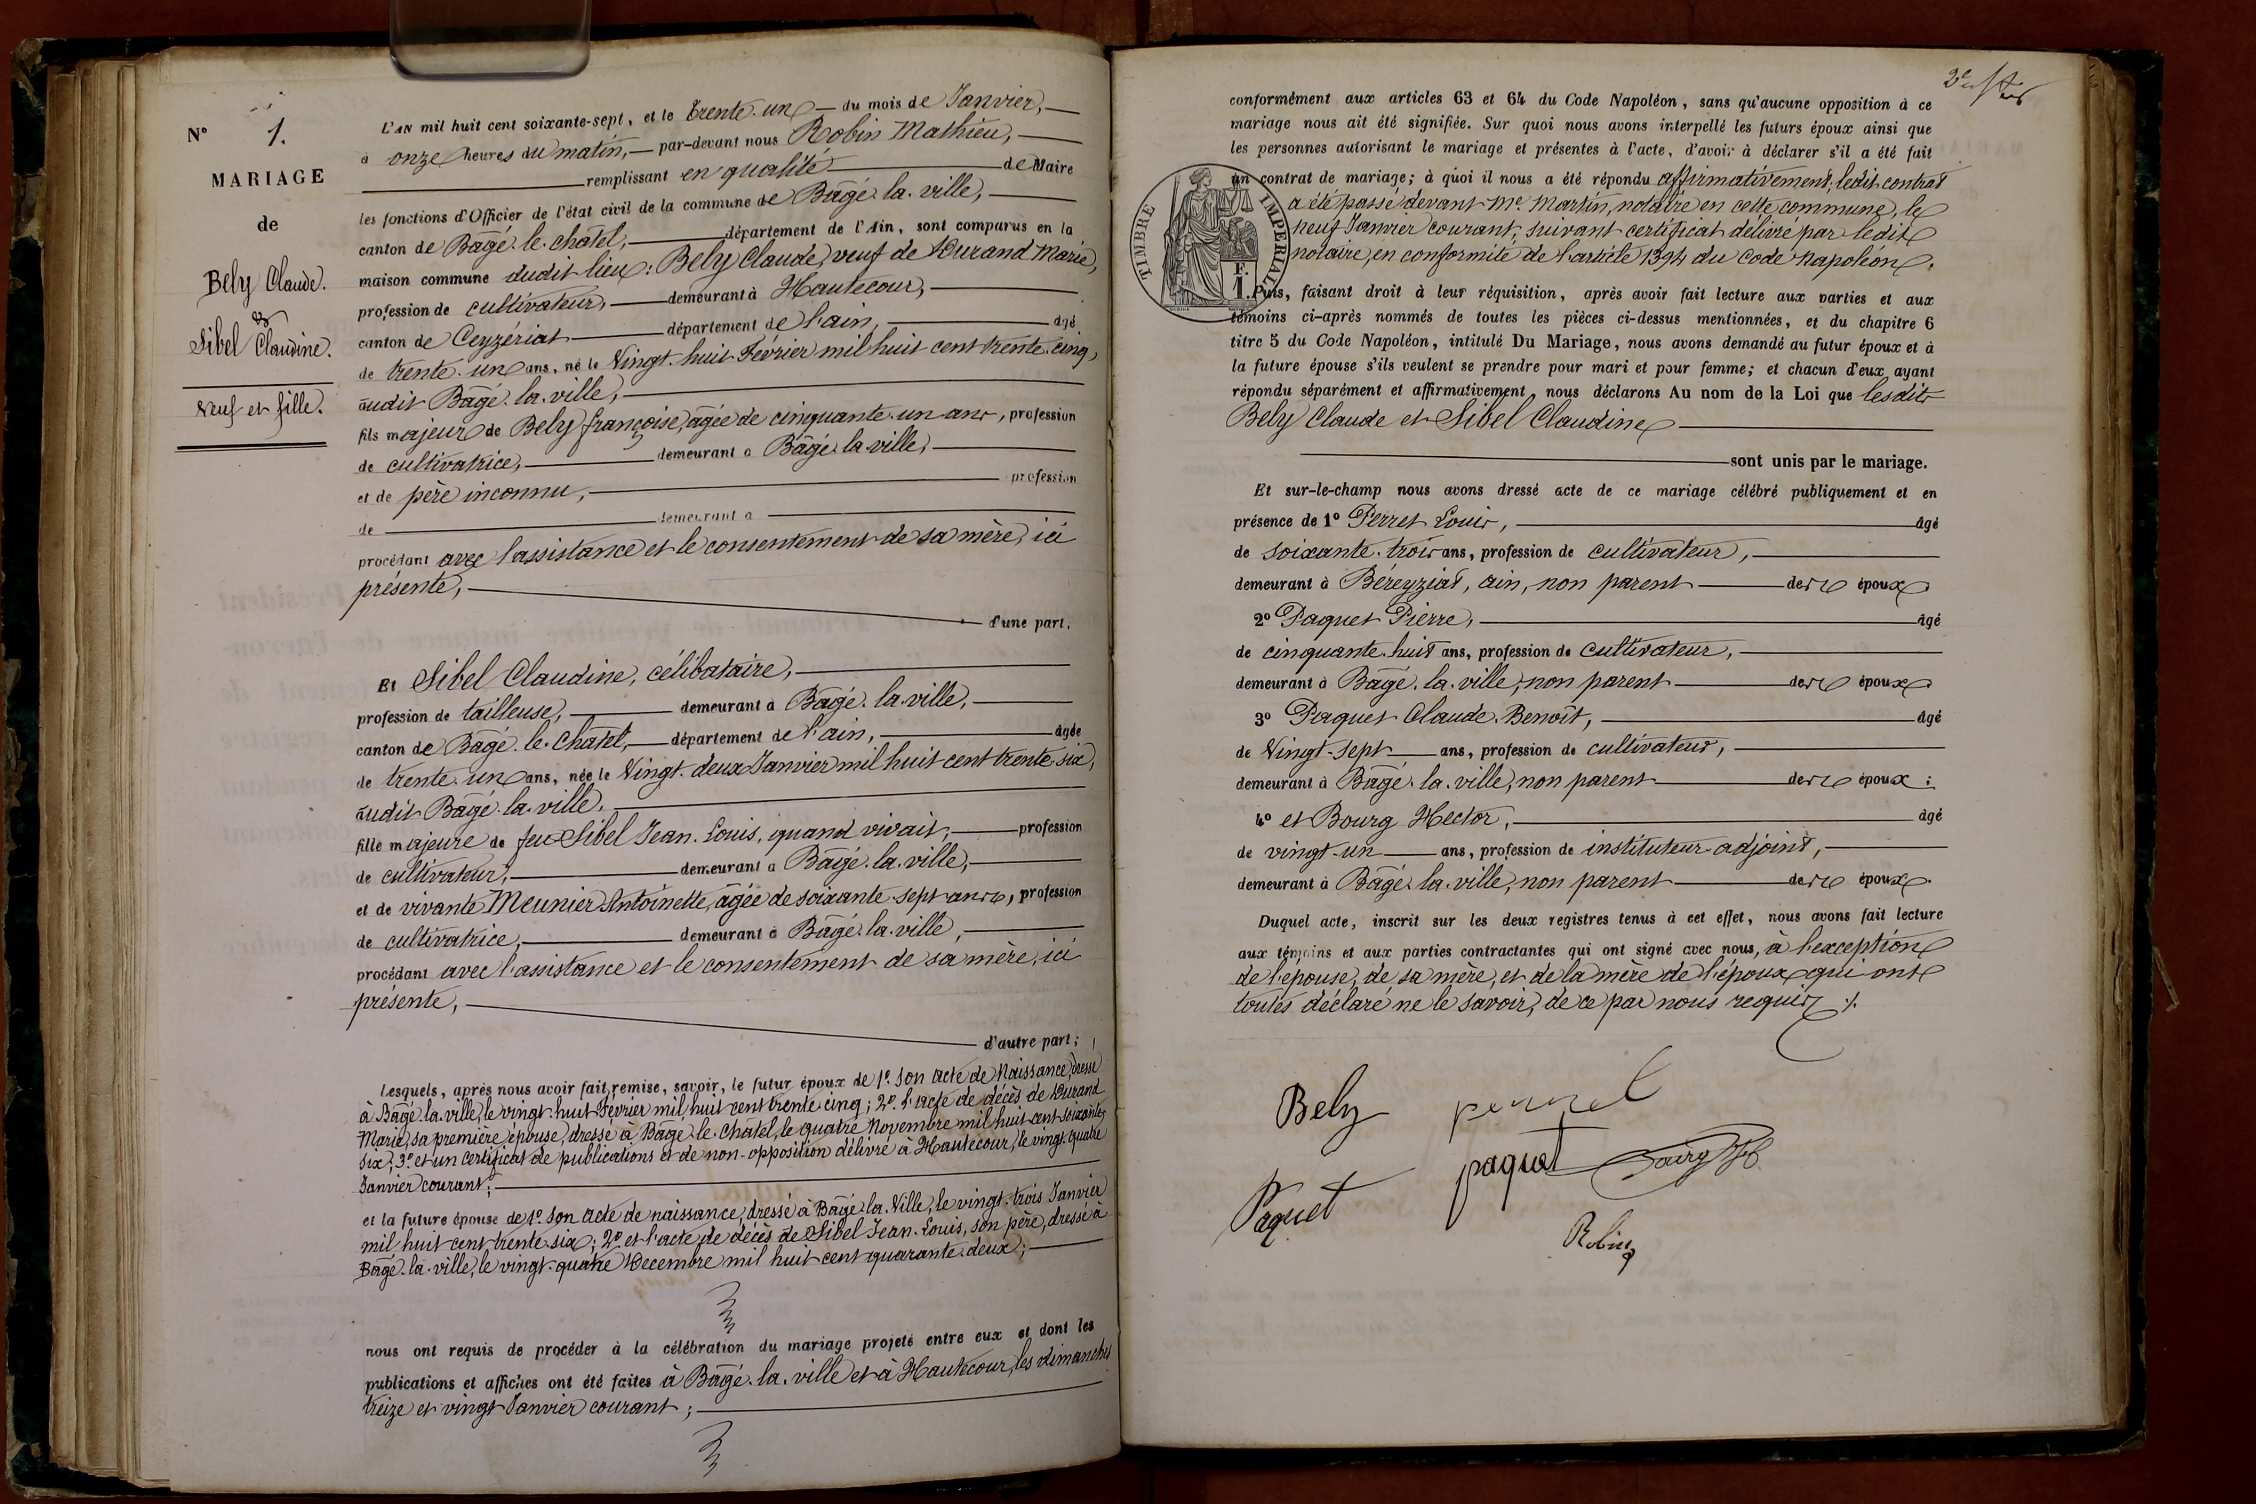 N° 1.
MARIAGE
de
Bely Claude.
&
Sibel Claudine.
Veuf et fille.
L'AN mil huit cent soixante-sept, et le trente-un du mois de Janvier,
à onze heures du matin, par-devant nous Robin Mathieu,
remplissant en qualité de Maire
les fonctions d'Officier de l'état civil de la commune de Bâgé-la-ville,
canton de Bâgé-le-châtel, département de l'Ain, sont comparus en la
maison commune dudit lieu: Bely Claude, veuf de Durand Marie,
profession de cultivateur, demeurant à Hautecour,
canton de Ceyzériat département de l'ain, âgé
de trente-un ans, né le Vingt-huit Février mil huit cent trente-cinq,
audit Bâgé-la-ville,
fils majeur de Bely françoise, âgée de cinquante-un ans, profession
de cultivatrice, demeurant à Bâgé-la-ville,
et de père inconnu, profession
de demeurant à
procédant avec l'assistance et le consentement de sa mère, ici
présente,
d'une part.
Et Sibel Claudine, célibataire,
profession de tailleuse, demeurant à Bâgé-la-ville,
canton de Bâgé-le-Chatel, département de l'ain, âgée
de trente-un ans, née le Vingt-deux Janvier mil huit cent trente-six,
audit Bâgé-la-ville.
fille majeure de feu Sibel Jean-Louis, quand vivait, profession
de cultivateur, demeurant à Bâgé-la-ville,
et de vivante Meunier Antoinette, âgée de soixante-sept ans, profession
de cultivatrice, demeurant à Bâgé-la-ville,
procédant avec l'assistance et le consentement de sa mère, ici
présente,
d'autre part;
Lesquels, après nous avoir fait remise, savoir, le futur époux de 1° son acte de Naissance, dressé
à Bâgé-la-ville, le vingt-huit Février mil huit cent trente-cinq; 2° l'acte de décès de Durand
Marie, sa première épouse, dressé à Bâgé-le-Chatel, le quatre Novembre mil huit cent soixante-
six; 3° et un certificat de publications et de non-opposition délivré à Hautecour, le vingt-quatre
Janvier courant;
et la future épouse de 1° son acte de naissance, dressé à Bâgé-la-Ville, le vingt-trois Janvier
mil huit cent trente-six; 2° et l'acte de décès de Sibel Jean-Louis, son père, dressé à
Bâgé-la-ville, le vingt-quatre Décembre mil huit cent quarante-deux;
nous ont requis de procéder à la célébration du mariage projeté entre eux et dont les
publications et affiches ont été faites à Bâgé-la-ville et à Hautecour, les dimanches
treize et vingt Janvier courant;
conformément aux articles 63 et 64 du Code Napoléon, sans qu'aucune opposition à ce
mariage nous ait été signifiée. Sur quoi nous avons interpellé les futurs époux ainsi que
les personnes autorisant le mariage et présentes à l'acte, d'avoir à déclarer s'il a été fait
un contrat de mariage; à quoi il nous a été répondu affirmativement; ledit contrat
a été passé devant Me. Martin, notaire en cette commune, le
neuf Janvier courant, suivant certificat délivré par ledit
notaire, en conformité de l'article 1394 du Code Napoléon.
TIMBRE IMPERIAL
1 F.
Puis, faisant droit à leur réquisition, après avoir fait lecture aux parties et aux
témoins ci-après nommés de toutes les pièces ci-dessus mentionnées, et du chapitre 6
titre 5 du Code Napoléon, intitulé Du Mariage, nous avons demandé au futur époux et à
la future épouse s'ils veulent se prendre pour mari et pour femme; et chacun d'eux ayant
répondu séparément et affirmativement, nous déclarons Au nom de la Loi que lesdits
Bely Claude et Sibel Claudine
sont unis par le mariage.
Et sur-le-champ nous avons dressé acte de ce mariage célébré publiquement et en
présence de 1° Perret Louis, âgé
de soixante-trois ans, profession de cultivateur,
demeurant à Béreyziat, ain, non parent des époux
2° Paquet Pierre, âgé
de cinquante-huit ans, profession de cultivateur,
demeurant à Bâgé-la-ville, non parent des époux
3° Paquet Claude-Benoît, âgé
de Vingt-sept ans, profession de cultivateur,
demeurant à Bâgé-la-ville, non parent des époux;
4° et Bourg Hector, âgé
de vingt-un ans, profession de instituteur-adjoint,
demeurant à Bâgé-la-ville, non parent des époux.
Duquel acte, inscrit sur les deux registres tenus à cet effet, nous avons fait lecture
aux témoins et aux parties contractantes qui ont signé avec nous, à l'exception
de l'épouse, de sa mère, et de la mère de l'époux qui ont
toutes déclaré ne le savoir, de ce par nous requis ./.
Bely perret
Paquet paquet Bourg H
Robin